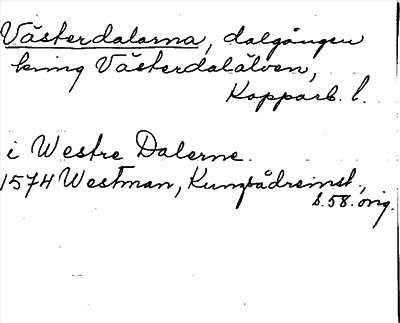 Västerdalarna, dalgången
kring Västerdalälven,
Kopparb. l.
i Westre Dalerne.
1574 Westman, Kungsådreinst.,
s. 58. orig.